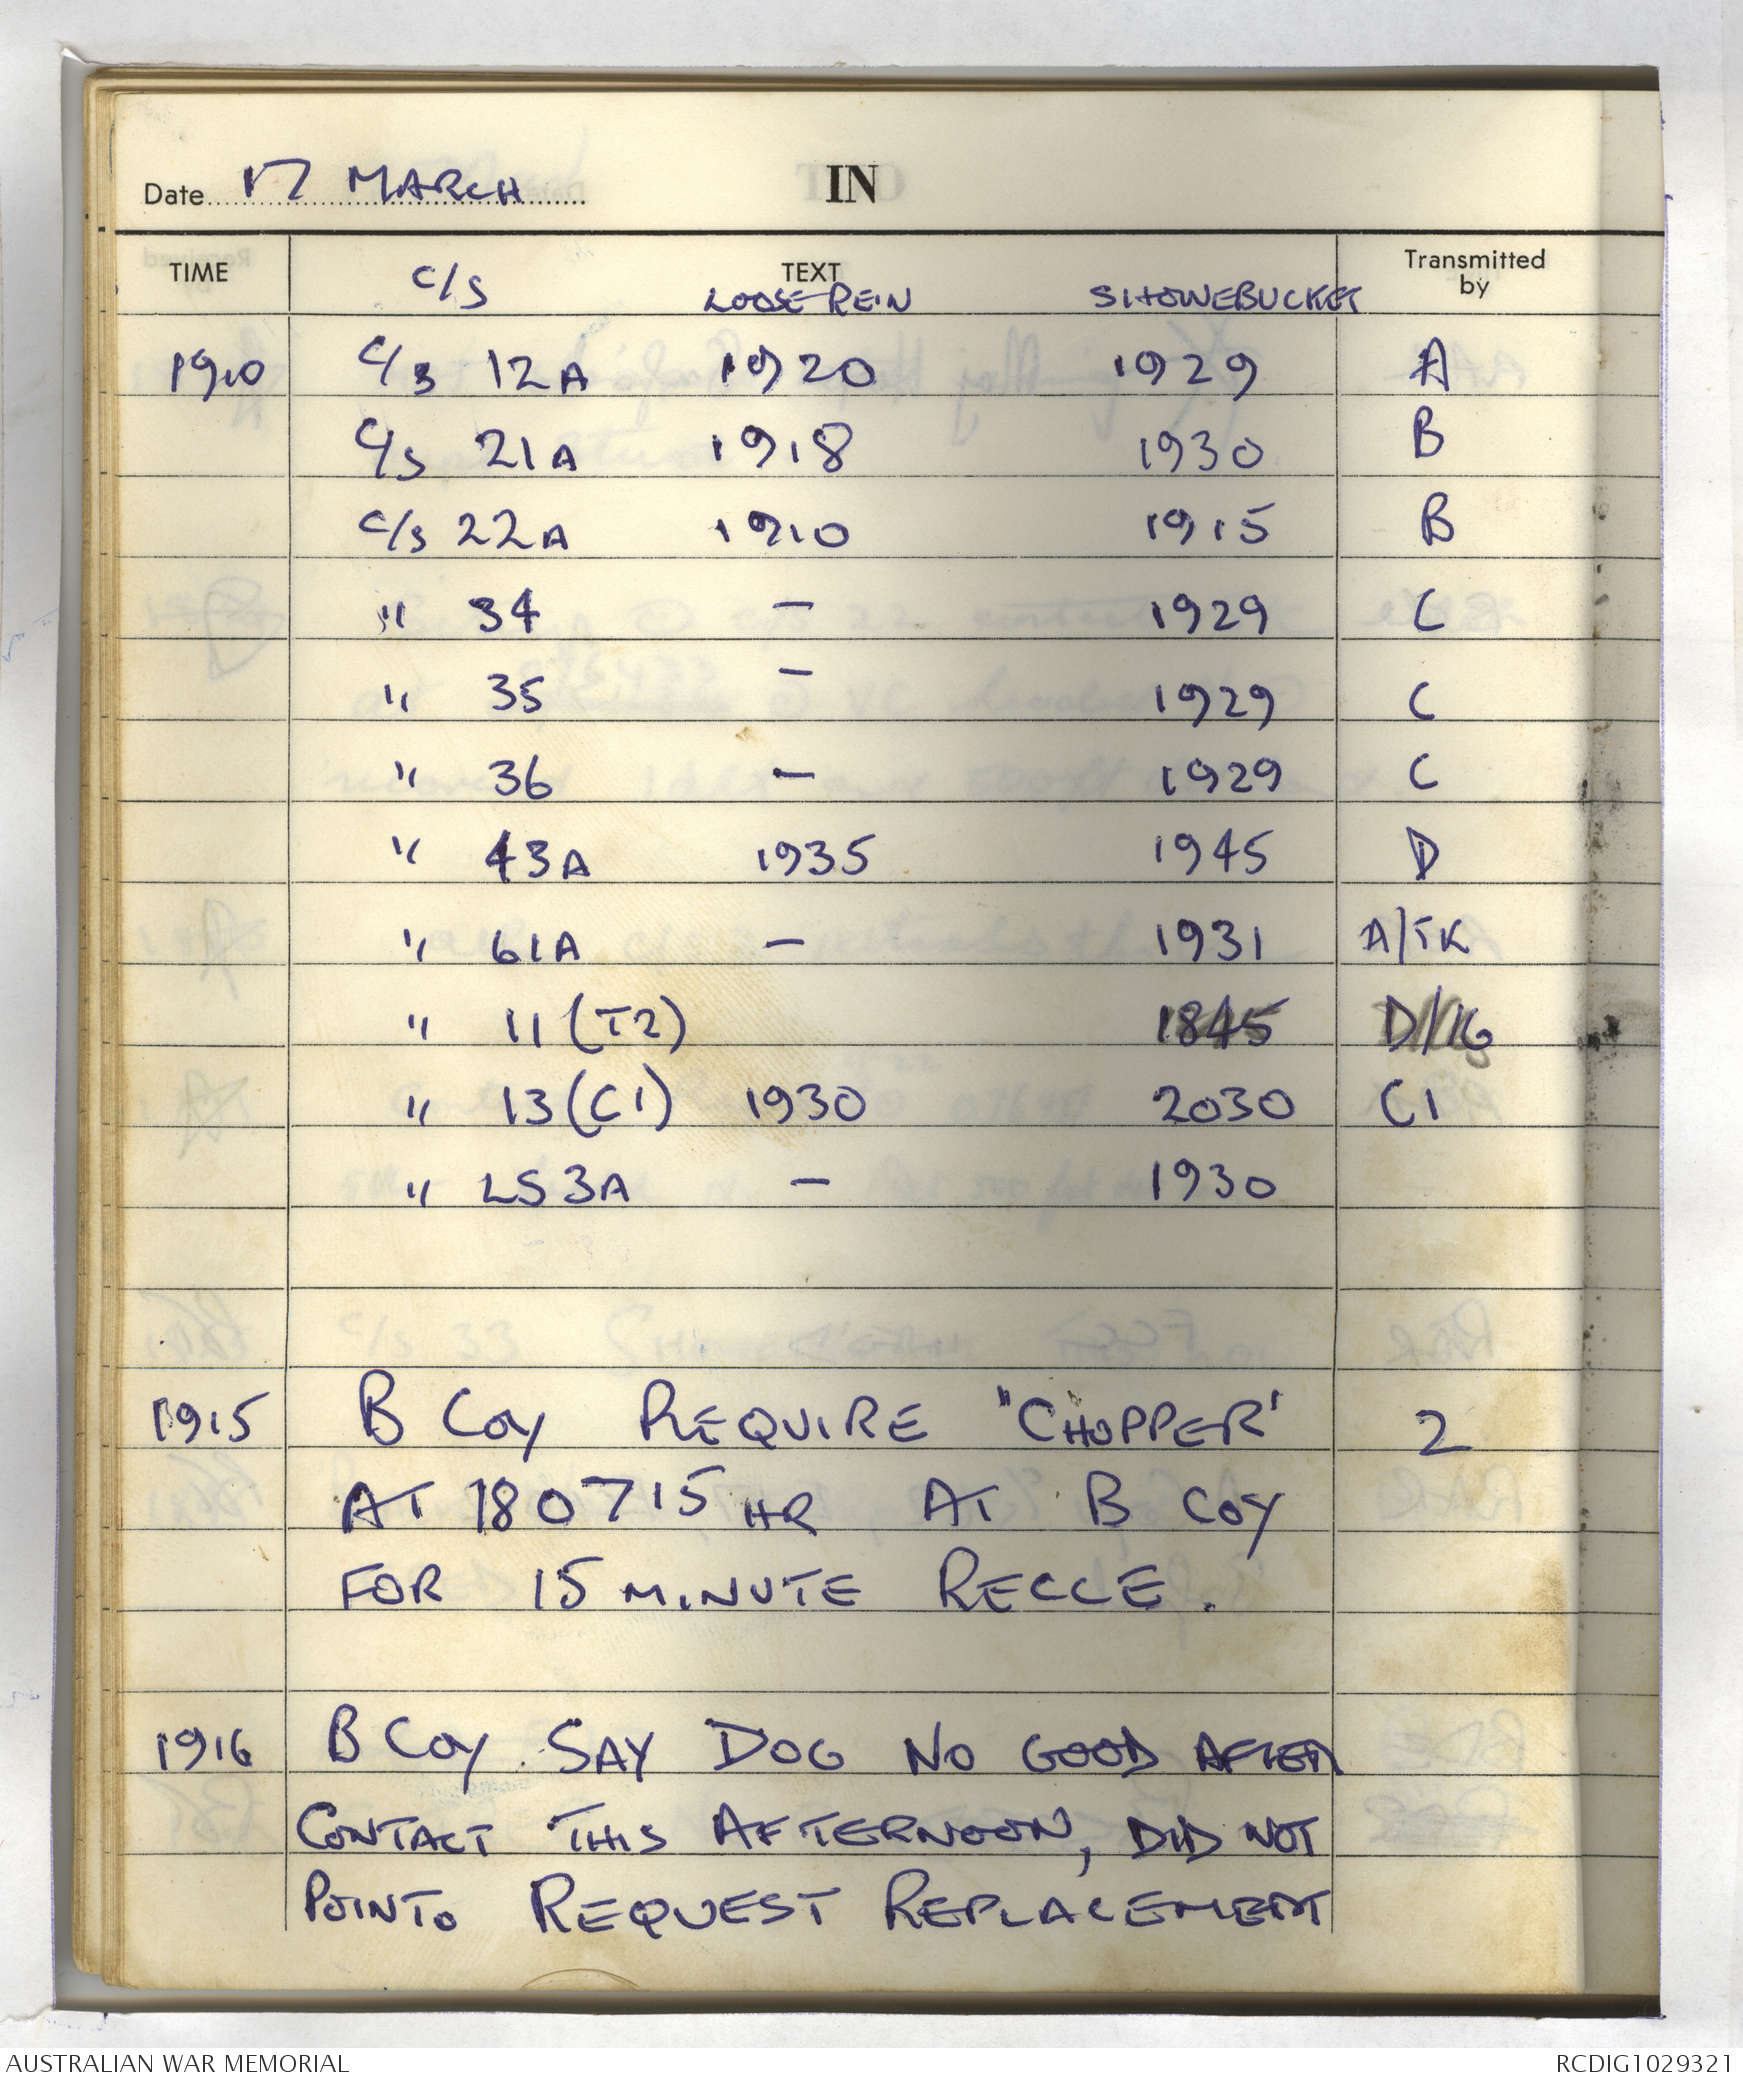 Date 17 MARCH IN
TIME C/S TEXT Transmitted by
LOOSE REIN SHOWEBUCKET
1910 C/S 12A 1920 1929 A
C/S 21A 1918 1930 B
C/S 22A 1910 1915 B
" 34 – 1929 C
" 35 – 1929 C
" 36 – 1929 C
" 43A 1935 1945 D
" 61A – 1931 A/TK
" 11 (T2) 1845 D/16
" 13 (C1) 1930 2030 C1
" LS3A – 1930
1915 B Coy REQUIRE "CHOPPER' 2
AT 180715 HR AT B COY
FOR 15 MINUTE RECCE.
1916 B Coy SAY DOG NO GOOD AFTER
CONTACT THIS AFTERNOON, DID NOT
POINT. REQUEST REPLACEMENT
AUSTRALIAN WAR MEMORIAL RCDIG1029321